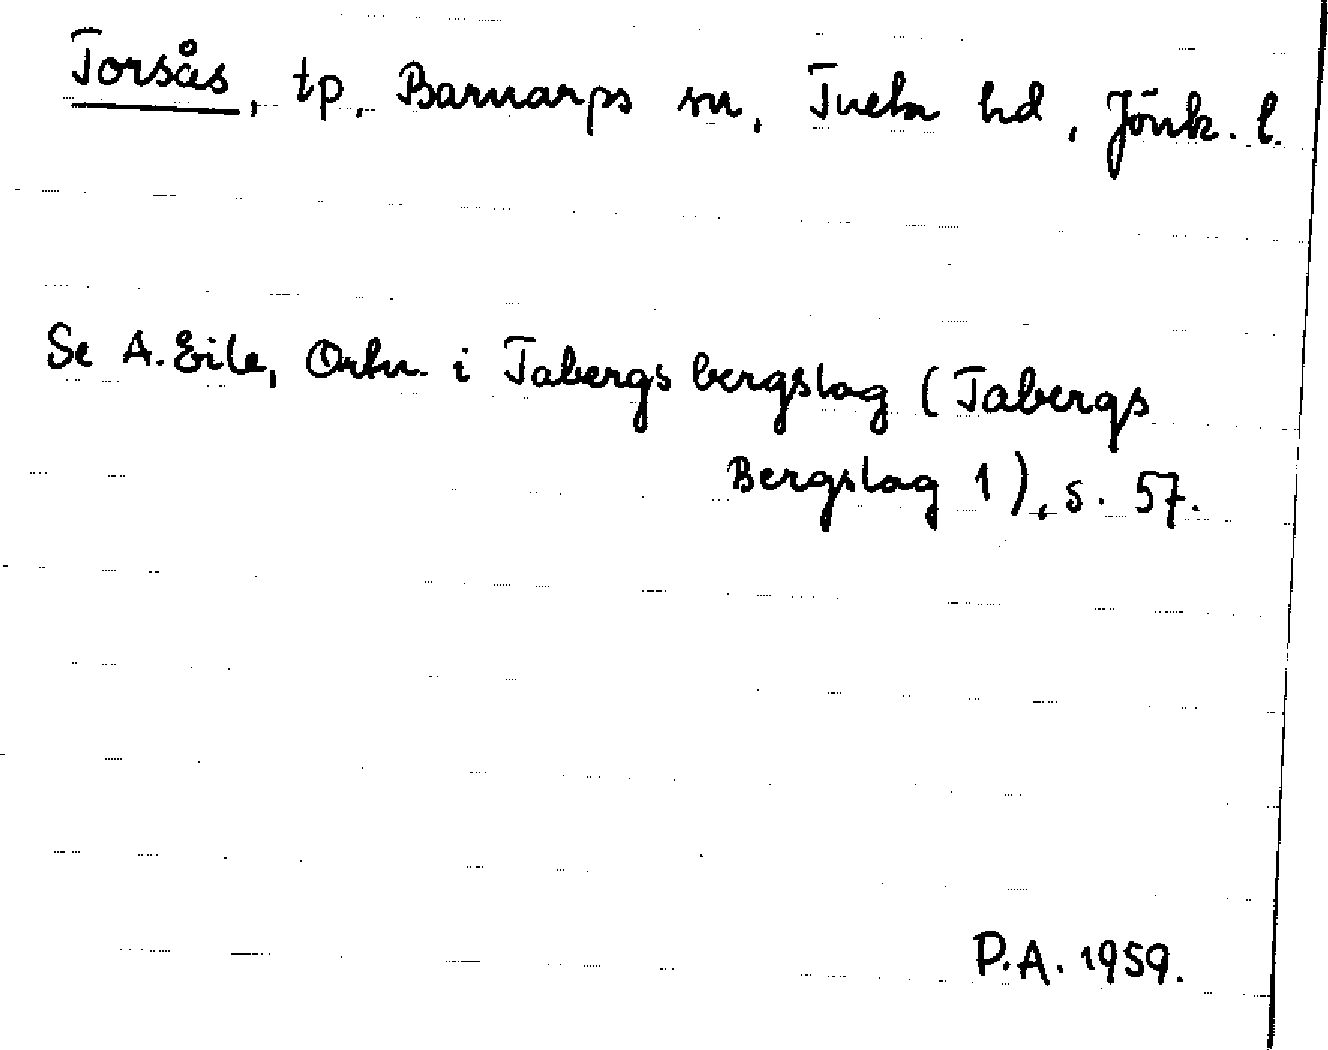 Torsås, tp, Barnarps sn, Tveta hd, Jönk. l.
Se A. Eile, Ortn. i Tabergs bergslag (Tabergs
Bergslag 1), s. 57.
P.A. 1959.